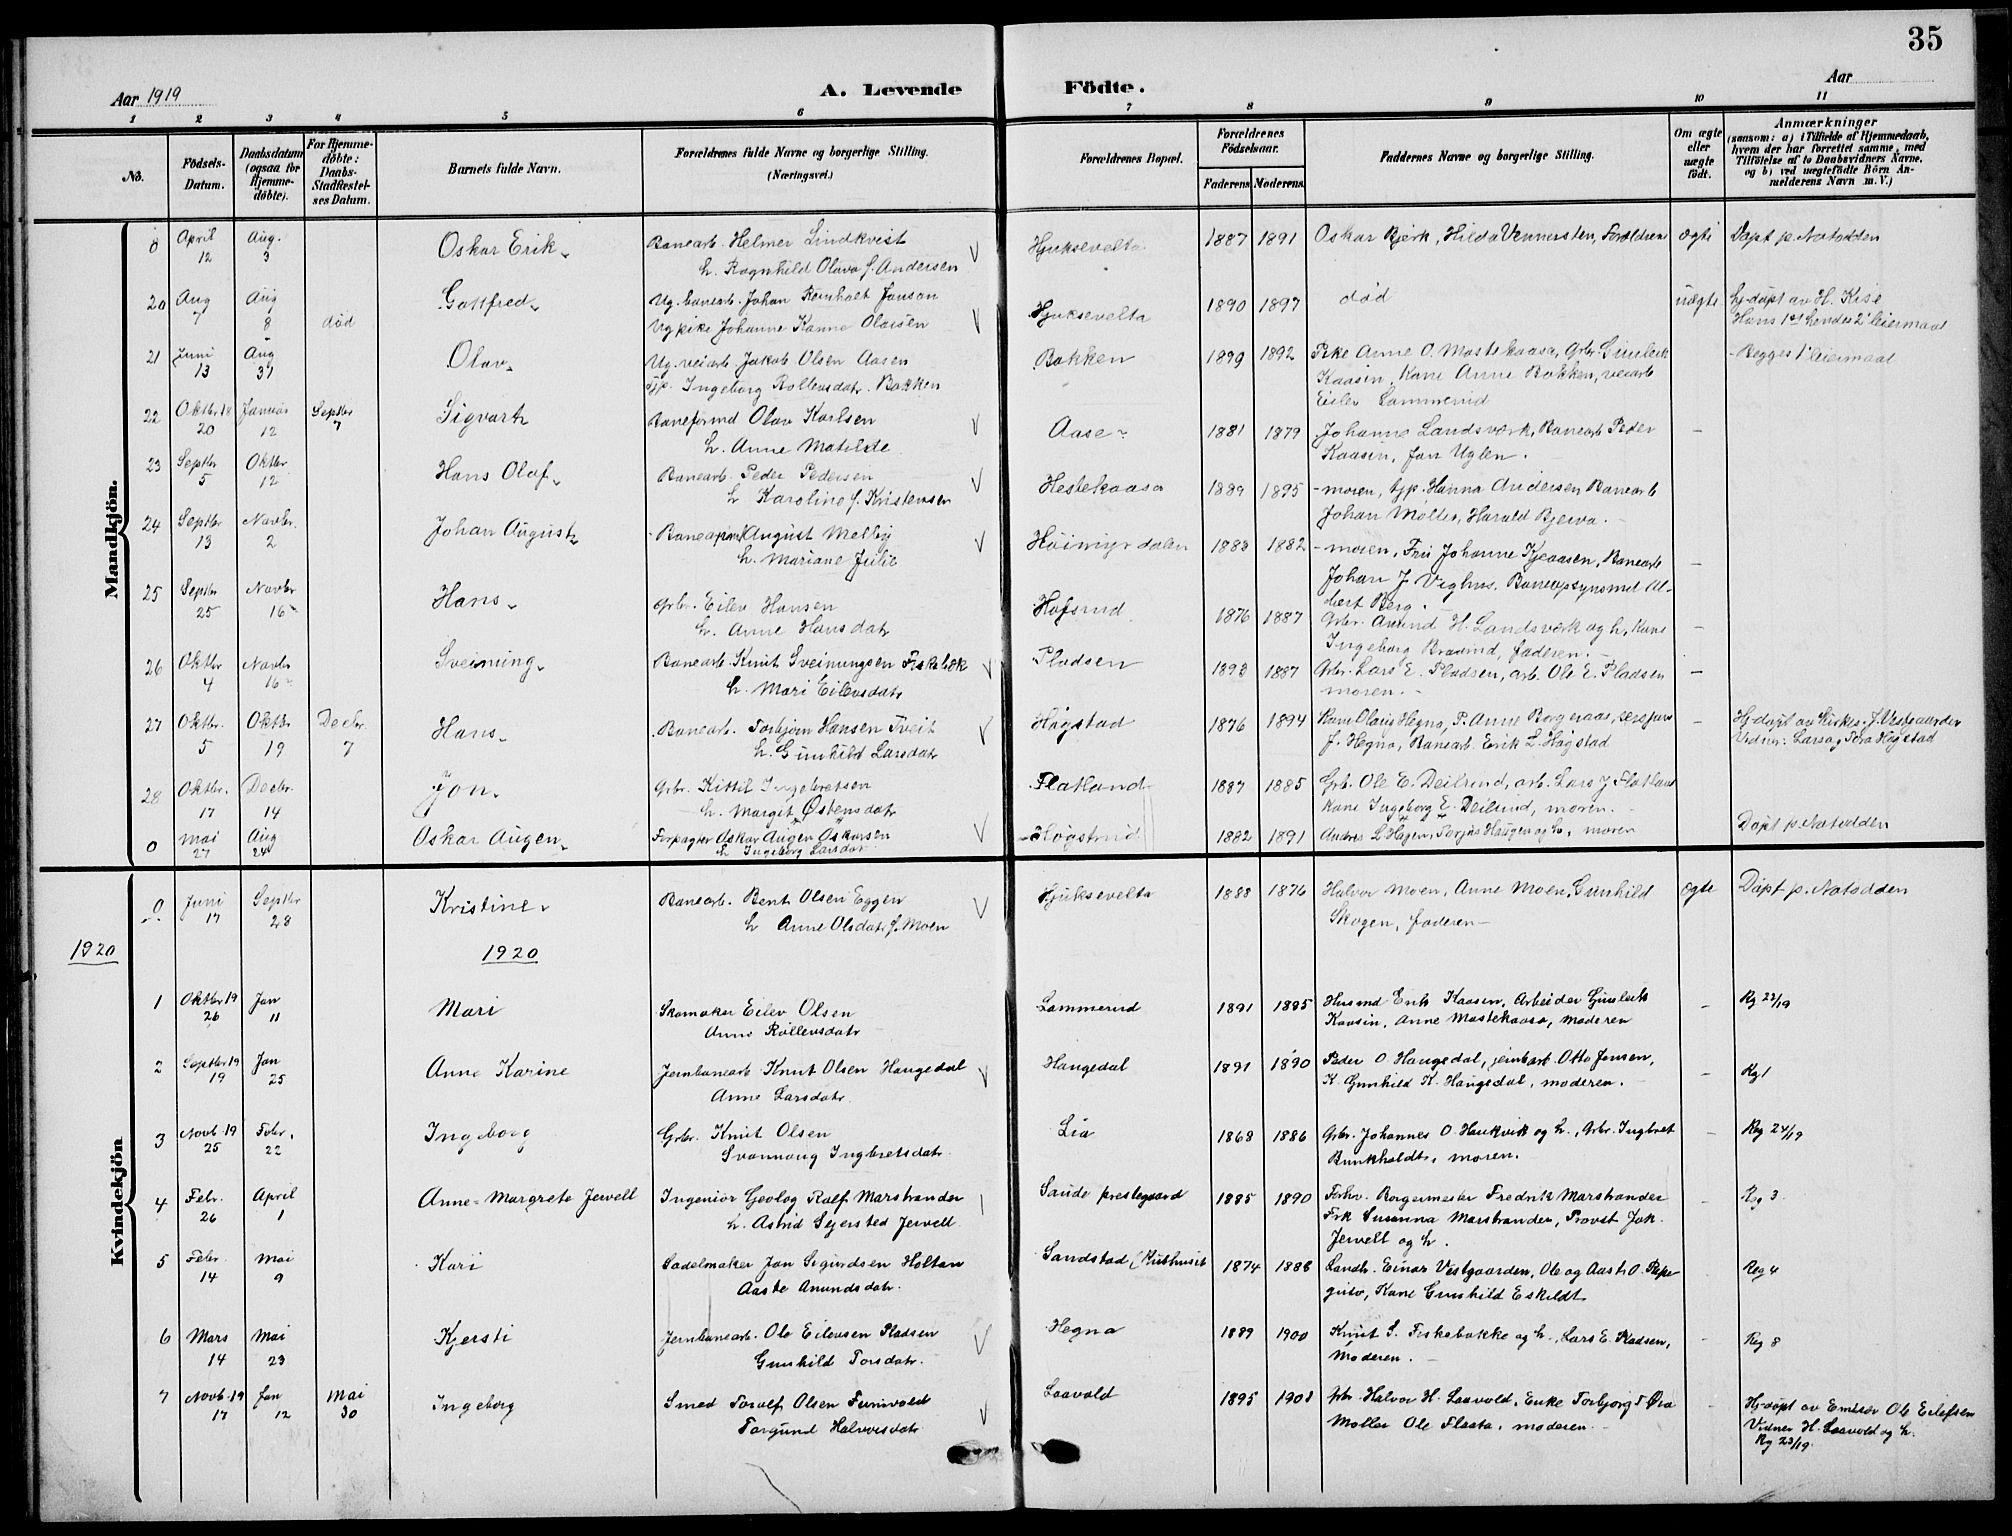 35
Aar 1919
A. Levende
Fødte.
Aar
1 2 3 4 5 6 7 8 9 10 11
No.
Fødsels-
Datum.
Daabsdatum
(ogsaa for
Hjemme-
døbte).
For Hjemme-
døbte:
Daabs-
Stadfæstel-
ses Datum.
Barnets fulde Navn.
Forældrenes fulde Navne og borgerlige Stilling.
(Næringsvei.)
Forældrenes Bopæl.
Forældrenes
Fødselsaar.
Faderens. Moderens.
Faddernes Navne og borgerlige Stilling.
Om ægte
eller
uægte
født.
Anmærkninger
(saasom: a) i Tilfælde af Hjemmedaab,
hvem der har forrettet samme, med
Tilføielse af to Daabsvidners Navne,
og b) ved uægtefødte Børn An-
melderens Navn m. V.)
Mandkjön.
0 April 12 Aug. 3 Oskar Erik Banearb. Helmer Lindkvist
h. Ragnhild Olava f. Andersen Hjuksevelta 1887 1891 Oskar Bjerk, Hilda Vennersten, Forældrene ægte Døpt p. Notodden
20 Aug 7 Aug 8 død Gottfred Ug. banearb. Johan Jonson
Ug pike Johanne Olausen Hjuksevelta 1890 1897 død uægte Hj.døpt av H. Kise
Hans 1ste hendes 2 leiermaal
21 Juni 13 Aug 31 Olav Ug. veiarb. Jakob Olsen Aasen
tjp. Ingeborg Rollevsdatr. Bakken Bakken 1899 1892 Pike Anne O. Mastekaasa, Grbr. Gunleik
Kaasin, Kone Anne Bakken, veiarb
Eilev Lammerud Begges 1' leiermaal
22 Oktbr 18 20 Januar 12 Septbr 7 Sigvart Baneformd Olav Karlsen
h. Anne Matilde Aase 1881 1879 Johanne Landsværk, Banearb Peder
Kaasin, Jon Uglen. –
23 Septbr 5 Oktbr 12 Hans Olaf Banearb. Peder Pedersen
h Karoline f. Kristensen Hestekaasa 1889 1895 – moren, tjp. Hanna Andersen Banearb
Johan Møller, Harald Bjerva. –
24 Septbr 13 Novbr. 2 Johan August August Melby
h. Mariane Julie Høimyrdalen 1883 1882 – moren, Fru Johanne Kjeaasen, Banearb
Johan J Veghus, Baneopsynsmd Al-
bert Berg. –
25 Septbr 25 Novbr 16 Hans Grbr. Eilev Hansen
h. Anne Hansdatr Hofsrud 1876 1887 Grbr. Amund H. Landsværk og h, Kone
Ingeborg Brosrud, faderen. –
26 Oktbr 4 Novbr 16 Sveinung Banearb. Knut Sveinungsen Fiskebæk
h. Mari Eilevsdatr Pladsen 1893 1887 Grbr. Lars E. Pladsen, arb. Ole E. Pladsen
moren. –
27 Oktbr. 5 Oktbr 19 Decbr. 7 Hans Banearb. Torbjørn Hansen Tveit
h. Gunhild Larsdatr Høgstad 1876 1894 Kone Olaug Hegna, P. Anne Borgeraas,
J. Hegna, Banearb. Erik L. Høgstad – Hj.døpt av Kirkes. J. Vestgaarden
Vidner: Lars og Tora Høgstad
28 Oktbr. 17 Decbr. 14 Jon Grbr. Kittil Ingebretsen
h. Margit Østensdatr Flatland 1887 1885 Grb. Ole E. Deilrud, arb. Lars J Flatland
kone Ingeborg E. Deilrud, moren. –
0 Mai 27 Aug 24 Oskar Augen Forpagter Oskar Augen Oskarsen
h Ingeborg Larsdatr Høgstrud 1882 1891 Andreas L Hagen, Torjus Haugen og h, moren Døpt p. Notodden
Kvindekjön
0 Juni 17 Septbr 28 Kristine Banearb. Bent Olsen Eggen
h Anne Olsdatr f. Moen Hjuksevelta 1883 1876 Halvor Moen, Anne Moen, Gunhild
Skogen, faderen – ægte Døpt p. Notodden
1920 1920
1 Oktbr 19 26 Jan 11 Mari Skomaker Eilev Olsen
Anne Rollevsdatr Lammerud 1891 1895 Husmd Erik Kaasen, Arbeider Gunleik
Kaasin, Anne Mastekaasa, moderen – Rg 22/19
2 Septbr 19 19 Jan 25 Anne Karine Jernbanearb Knut Olsen Haugedal
Anne Larsdatr. Haugedal 1891 1890 Peder O Haugedal, jernbarb. Otto Jensen,
K. Gunhild K. Haugedal, moderen. – Rg 1
3 Novb 19 25 Febr. 22 Ingeborg Grbr. Knut Olsen
Svannaug Ingbretsdatr. Lia 1868 1886 Grbr. Johannes O. Haukvik og h., Grbr. Ingbret
Bunkholdt, moren. – Reg 24/19
4 Febr. 26 April 1 Anne-Margrete Jervell Ingeniør Geolog Rolf Marstrander
h. Astrid Sejersted Jervell. Saude prestegaard 1885 1890 Forhv. Borgermester Fredrik Marstrander
Frk Susanna Marstrander, Provst Jak.
Jervell og h. Reg 3
5 Febr. 14 Mai 9 Kari Sadelmaker Jon Sigurdsen Holtan
Aaste Anundsdatr. Sandstad (Kuthuset 1874 1888 Landh. Einar Vestgaarden, Ole og Aaste O. Repe
Kone Gunhild Eskildt. Reg 4
6 Mars 14 Mai 23 Kjersti Jernbanearb. Ole Eilevsen Pladsen
Gunhild Torsdatr. Hegna 1889 1900 Knut S. Fiskebakke og h., Lars E. Pladsen,
Moderen. – Reg 8
7 Novb. 19 17 Jan 12 Mai 30 Ingeborg Smed Toralf Olsen Funivold
Torgund Halvorsdatr Laavold 1895 1901 Gbr. Halvor H. Laavold, Enke Torbjørg T Øra
Møller Ole Flaata, moderen. Hj.døpt av Emissær Ole Eilefsen
Vidner H. Laavold og h.
Rg 23/19.